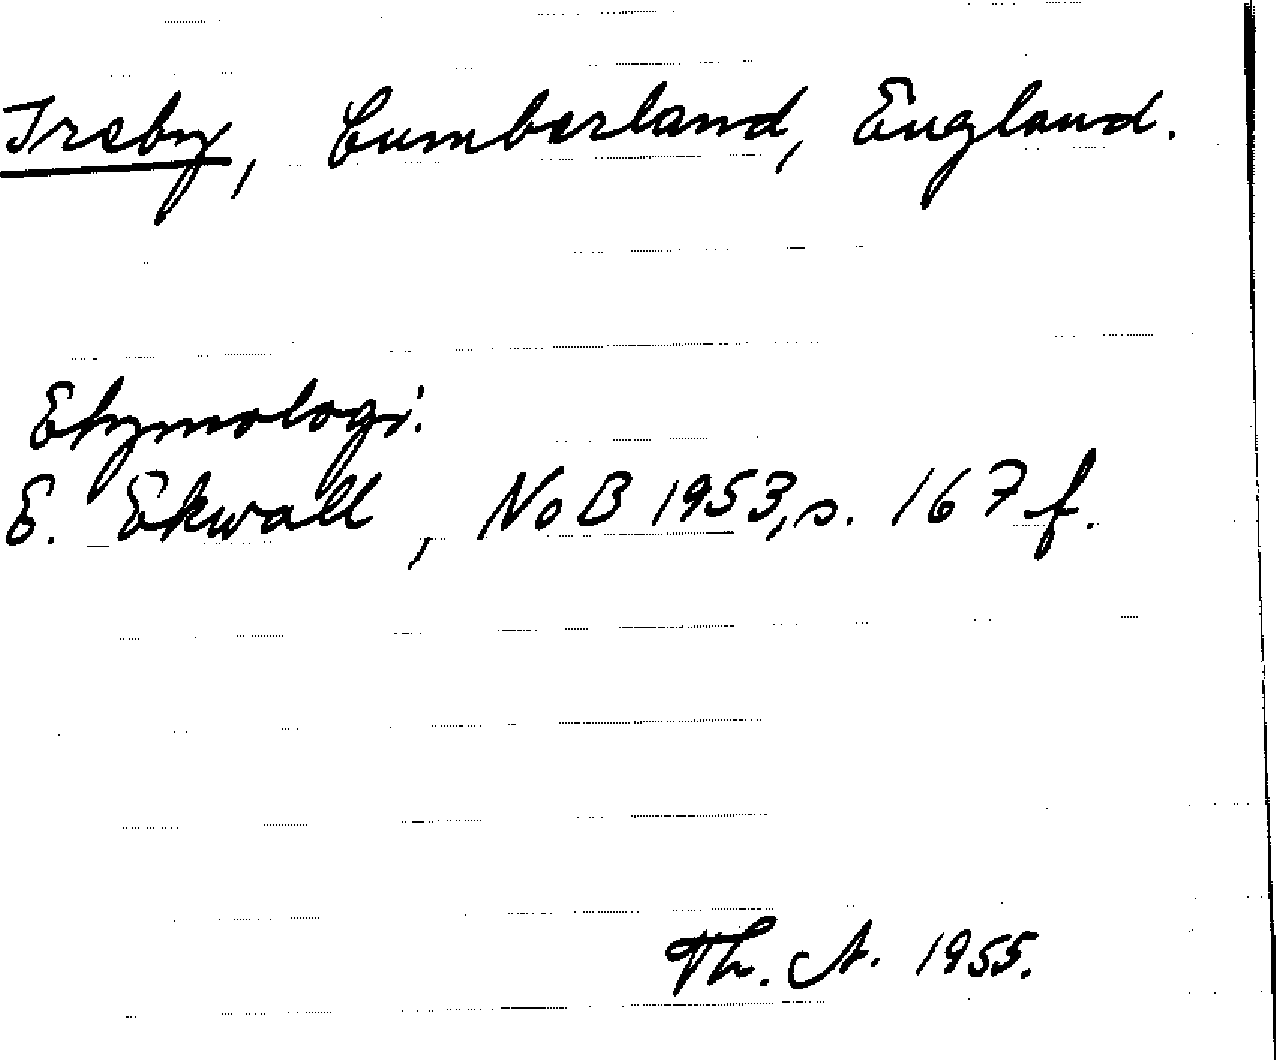 Ireby, Cumberland, England.
Etymologi.
E. Ekwall, NoB 1953, s. 167 f.
Th. A. 1955.